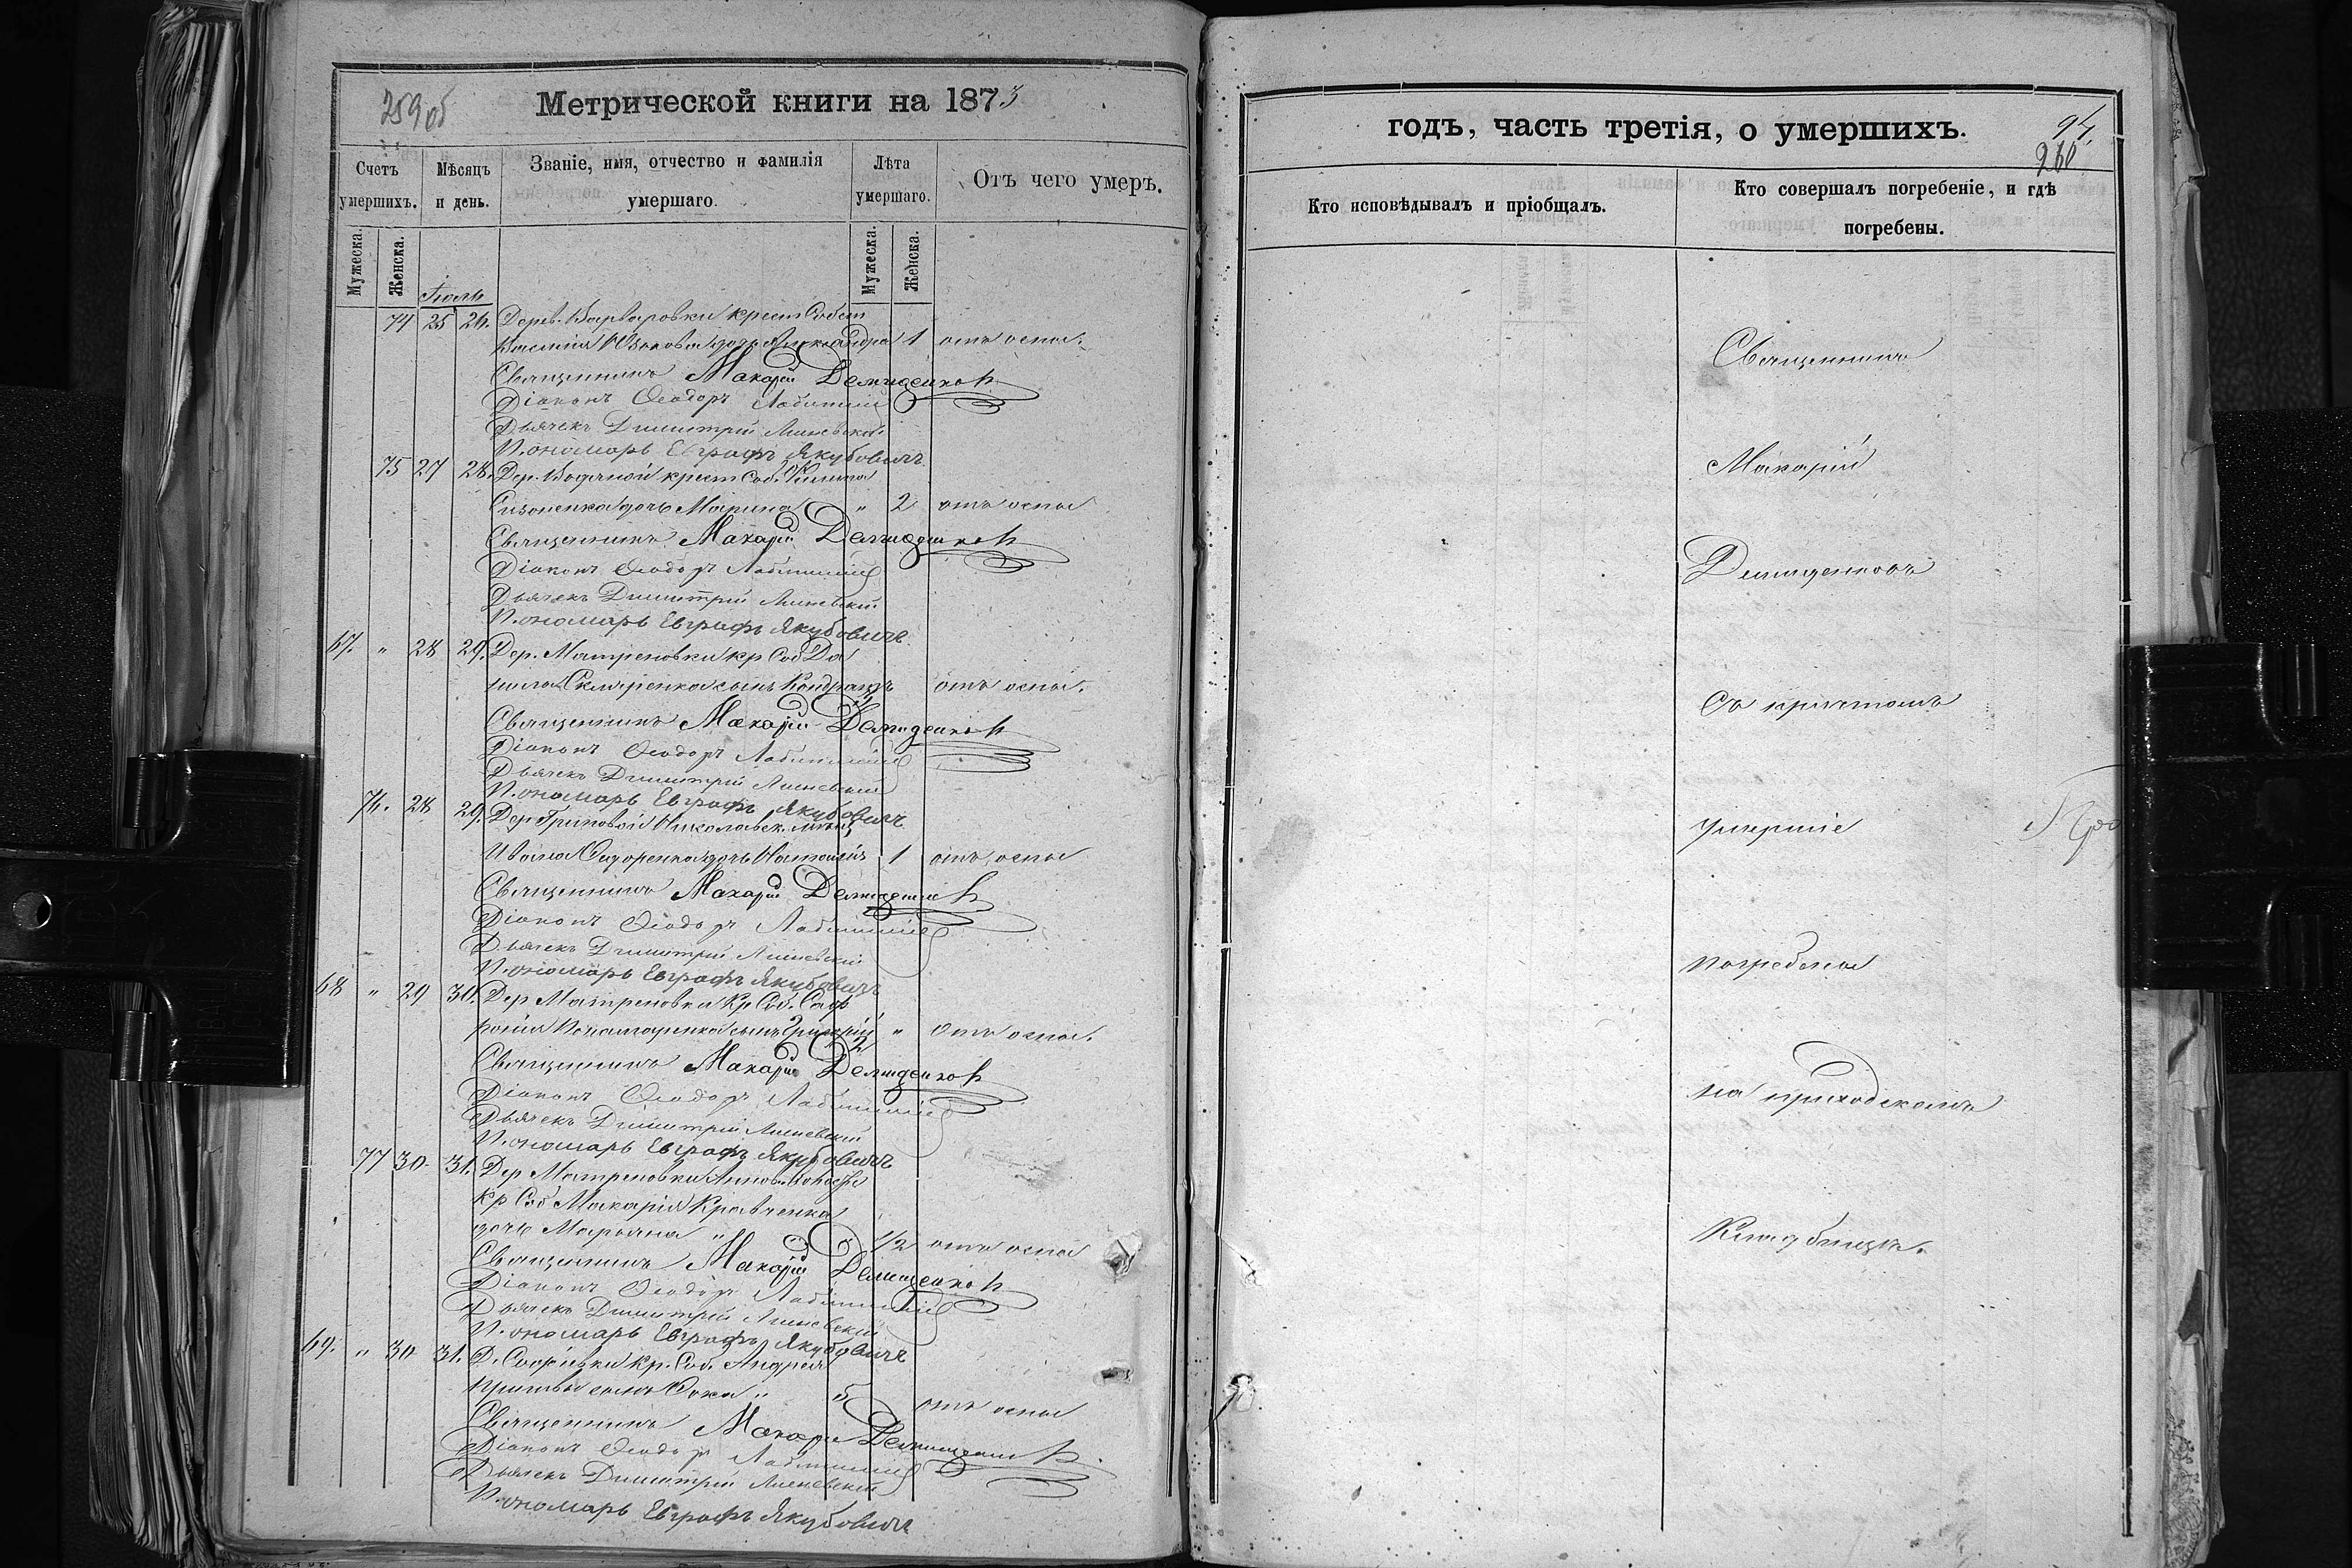 259об
Метрической книги на 1873
Счетъ умершихъ.
Мѣсяцъ и день.
Званіе, имя, отчество и фамилія умершаго.
Лѣта умершаго.
Отъ чего умеръ.
Мужеска.
Женска.
Мужеска.
Женска.
Іюль
74 25 26. Дерев. Варваровки крест Собст
Василія дочь Александра 1 отъ оспы.
Священникъ Макарій Демиденковъ
Діаконъ Ѳеодоръ
Дьячекъ Димитрій Линевскій
Пономарь Евграфъ Якубовичъ
75 27 28. Дер. крест Соб.
дочь Марина " 2 отъ оспы
Священникъ Макарій Демиденковъ
Діаконъ Ѳеодоръ
Дьячекъ Димитрій Линевскій
Пономарь Евграфъ Якубовичъ
67. " 28 29. Дер. Матреновки кр Соб Да
нила Скляренка сынъ Кондратъ отъ оспы.
Священникъ Макарій Демиденковъ
Діаконъ Ѳеодоръ
Дьячекъ Димитрій Линевскій
Пономарь Евграфъ Якубовичъ
76. 28 29. Дер. Николаевск.
Ивана Сидоренка дочь Наталія 1 отъ оспы
Священникъ Макарій Демиденковъ
Діаконъ Ѳеодоръ
Дьячекъ Димитрій Линевскій
Пономарь Евграфъ Якубовичъ
68 " 29 30. Дер Матреновки Кр. Соб. Соф
ронія сынъ Григорій 2 " Отъ оспы.
Священникъ Макарій Демиденковъ
Діаконъ Ѳеодоръ
Дьячекъ Димитрій Линевскій
Пономарь Евграфъ Якубовичъ
77 30 31. Дер Матреновки
кр Соб Макарія Кравченка
дочь Марьяна " 1/2 отъ оспы
Священникъ Макарій Демиденковъ
Діаконъ Ѳеодоръ
Дьячекъ Димитрій Линевскій
Пономарь Евграфъ Якубовичъ
69. " 30 31. Д. Софіевки кр. Соб. Андрея
сынъ Ѳока " 5 отъ оспы
Священникъ Макарій Демиденковъ
Діаконъ Ѳеодоръ
Дьячекъ Димитрій Линевскій
Пономарь Евграфъ Якубовичъ
годъ, часть третія, о умершихъ.
94
260
Кто исповѣдывалъ и пріобщалъ.
Кто совершалъ погребеніе, и гдѣ погребены.
Священникъ
Макарій
Демиденковъ
Съ причтомъ
Умершіе
погребены
на приходскомъ
Кладбищѣ.